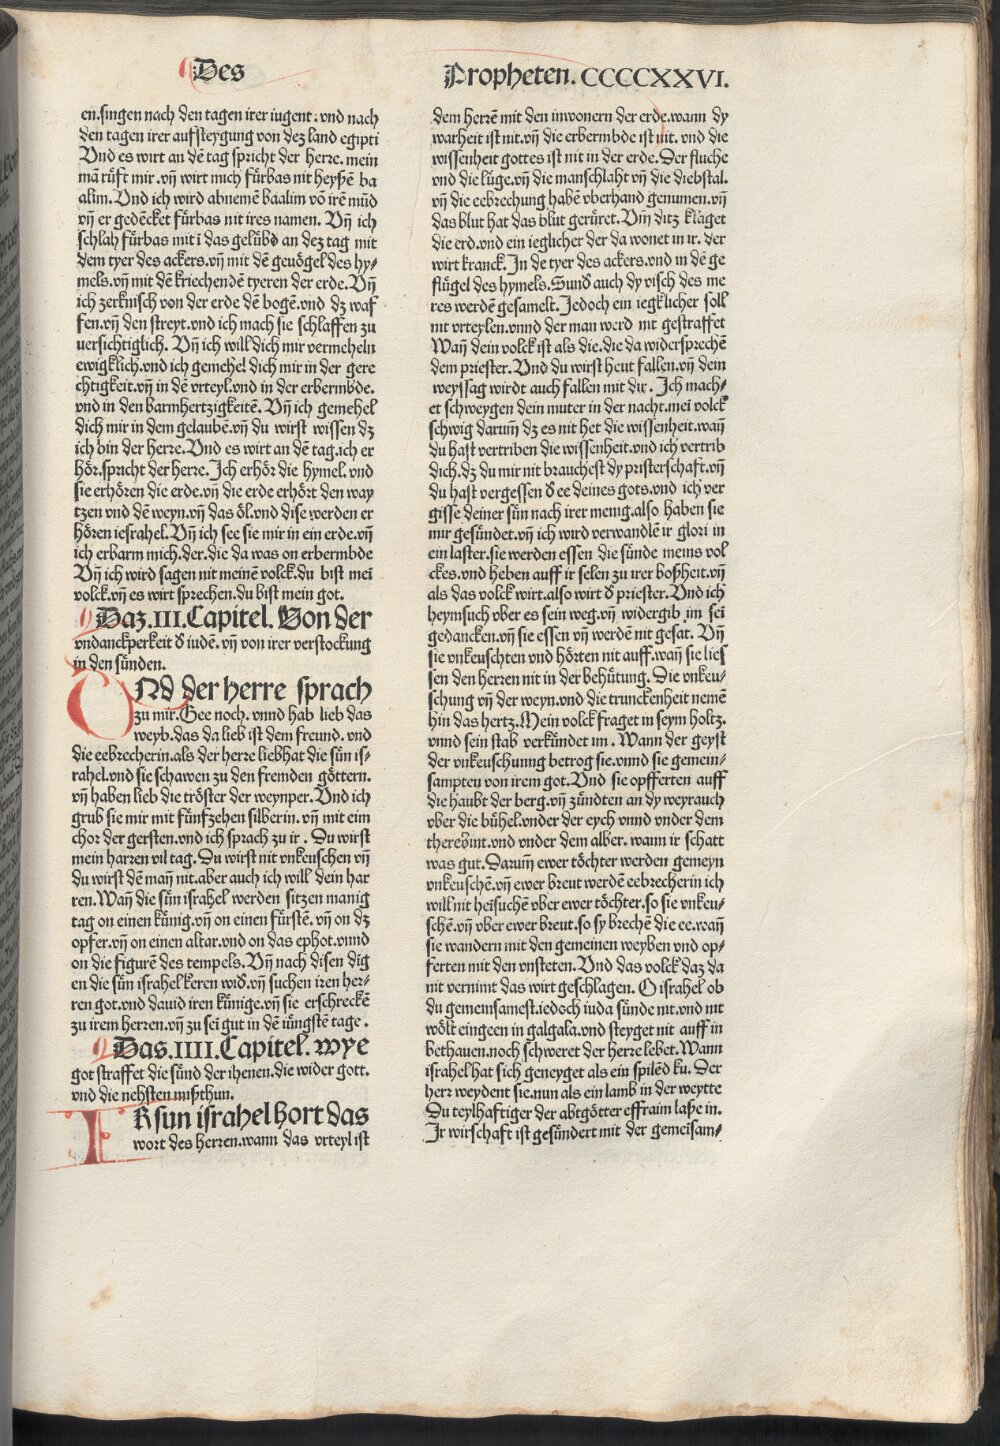 Des
Propheten. CCCCXXVI.
en.singen nach den tagen irer iugent.vnd nach
den tagen irer aufsteygung von dez land egipti
Vnd es wirt an dē tag spricht der herre. mein
mā rüft mir.vñ wirt mich fürbas nit heyßē ba
alim. Vnd ich wird abnemē baalim vō irē mūd
vñ er gedēcket fürbas nit ires namen. Vñ ich
schlah fürbas mit ī das gelübd an dez tag mit
dem tyer des ackers.vñ mit dē geuögel des hy⸗
mels.vñ mit dē kriechendē tyeren der erde. Vñ
ich zerknisch von der erde dē bogē.vnd dz waf
fen.vñ den streyt.vnd ich mach sie schlaffen zu
uersichtiglich. Vñ ich will dich mir vermeheln
ewigklich.vnd ich gemehel dich mir in der gere
chtigkeit.vñ in dē vrteyl.vnd in der erbermbde.
vnd in den barmhertzigkeitē. Vñ ich gemehel
dich mir in dem gelaubē.vñ du wirst wissen dz
ich bin der herre. Vnd es wirt an dē tag.ich er
hör.spricht der herre. Ich erhör die hymel. vnd
sie erhören die erde.vñ die erde erhört den way
tzen vnd dē weyn.vñ das öl.vnd dise werden er
hören iesrahel. Vñ ich see sie mir in ein erde.vñ
ich erbarm mich.der.die da was on erbermbde
Vñ ich wird sagen nit meinē volck.du bist mei
volck.vñ es wirt sprechen.du bist mein got.
Daz.III.Capitel. Von der
vndanckperkeit d̕ iudē. vñ von irer verstockung
in den sünden.
VNd der herre sprach
zu mir. Gee noch. vnnd hab lieb das
weyb.das da lieb ist dem freund. vnd
die eebrecherin.als der herre liebhat die sün is⸗
rahel.vnd sie schawen zu den fremden göttern.
vñ haben lieb die tröster der weynper. Vnd ich
grub sie mir mit fünfzehen silberin. vñ mit eim
chor der gersten.vnd ich sprach zu ir. Du wirst
mein harren vil tag. Du wirst nit vnkeuschen vñ
du wirst dē mañ nit.aber auch ich will dein har
ren. Wañ die sün israhel werden sitzen manig
tag on einen künig.vñ on einen fürstē. vñ on dz
opfer.vñ on einen altar.vnd on das ephot.vnnd
on die figurē des tempels. Vñ nach disen dīg
en die sün israhel keren wid̕.vñ suchen iren her⸗
ren got.vnd dauid iren künige.vñ sie erschreckē
zu irem herren.vñ zu sei gut in dē iüngstē tage.
Das.IIII.Capitel. wye
got straffet die sünd der ihenen.die wider gott.
vnd die nehsten mißthun.
IR sun israhel hort das
wort des herren.wann das vrteyl ist
dem herrē mit den inwonern der erde.wann dy
warheit ist nit.vñ die erbermbde ist nit. vnd die
wissenheit gottes ist nit in der erde. Der fluche
vnd die lüge.vñ die manschlaht vñ die diebstal.
vñ die eebrechung habē vberhand genumen.vñ
das blut hat das blut gerüret. Vñ ditz klaget
die erd.vnd ein ieglicher der da wonet in ir. der
wirt kranck. In de tyer des ackers.vnd in dē ge
flügel des hymels. Sund̕ auch dy visch des me
res werdē gesamelt. Jedoch ein iegklicher soll
nit vrteylen.vnnd der man werd nit gestraffet
Wañ dein volck ist als die.die da widersprechē
dem priester. Vnd du wirst heut fallen.vñ dein
weyssag wirdt auch fallen mit dir. Ich mach⸗
et schweygen dein muter in der nacht.mei volck
schwig darum̄ dz es nit het die wissenheit.wañ
du hast vertriben die wissenheit.vnd ich vertrib
dich.dz du mir nit brauchest dy pristerschaft.vñ
du hast vergessen d̕ ee deines gots.vnd ich ver
gisse deiner sün nach irer menig.also haben sie
mir gesündet.vñ ich wird verwandlē ir glori in
ein laster.sie werden essen die sünde meins vol
ckes.vnd heben auff ir selen zu irer boßheit.vñ
als das volck wirt.also wirt d̕ priester. Vnd ich
heymsuch vber es sein weg.vñ widergib im sei
gedancken.vñ sie essen vñ werdē nit gesat. Vñ
sie vnkeuschten vnd hörten nit auff.wañ sie lies
sen den herren nit in der behütung. Die vnkeu⸗
schung vñ der weyn.vnd die trunckenheit nemē
hin das hertz. Mein volck fraget in seym holtz.
vnnd sein stab verkündet im. Wann der geyst
der vnkeuschunng betrog sie.vnnd sie gemein⸗
sampten von irem got. Vnd sie opfferten auff
die haubt der berg.vñ zündten an dy weyrauch
vber die bühel.vnder der eych vnnd vnder dem
therebint.vnd vnder dem alber. wann ir schatt
was gut. Darum̄ ewer töchter werden gemeyn
vnkeuschē.vñ ewer breut werdē eebrecherin ich
will nit heisuchē vber ewer töchter.so sie vnkeu⸗
schē.vñ vber ewer breut.so sy brechē die ee.wañ
sie wandern mit den gemeinen weyben vnd op⸗
ferten mit den vnsteten. Vnd das volck daz da
nit vernimt das wirt geschlagen. O israhel ob
du gemeinsamest.iedoch iuda sünde nit.vnd nit
wölt eingeen in galgala.vnd steyget nit auff in
bethauen.noch schweret der herre lebet. Wann
israhel hat sich geneyget als ein spilēd ku. Der
herr weydent sie.nun als ein lamb in der weytte
Du teylhaftiger der abtgötter effraim laße in.
Ir wirschaft ist gesündert mit der gemeisam⸗